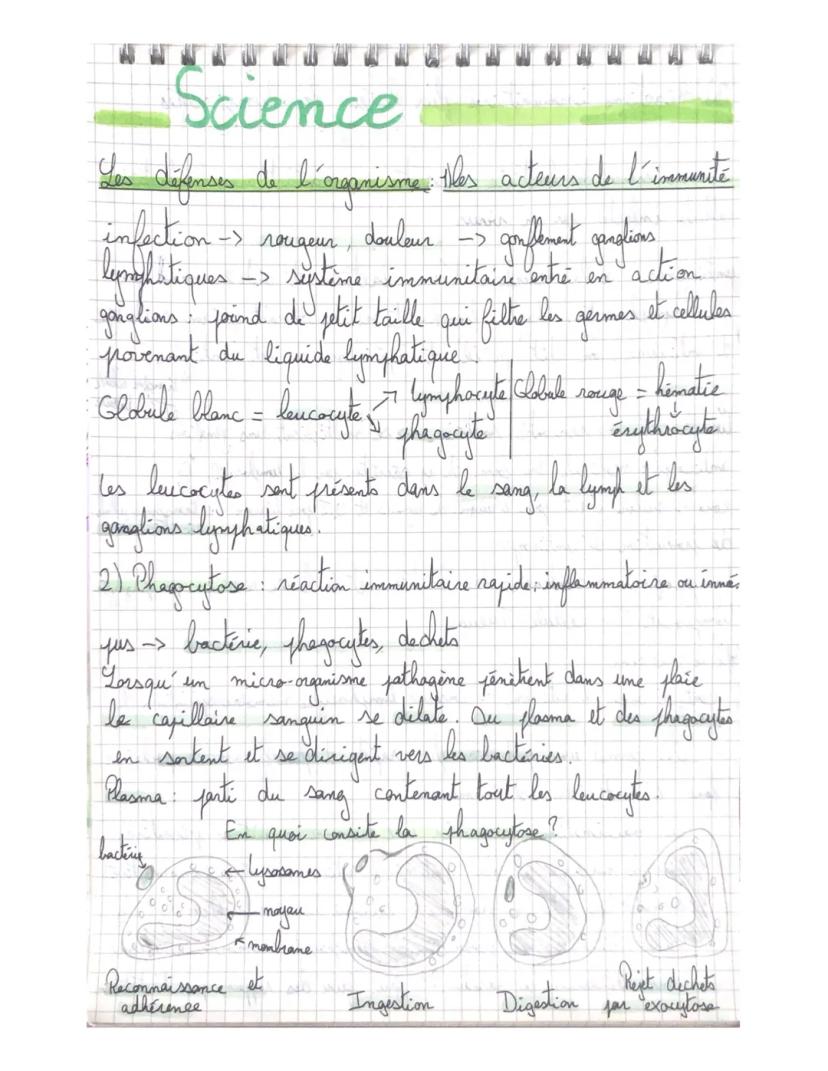 Science
Les défenses de l'organisme : 1) les acteurs de l'immunité
infection -> rougeur, douleur -> gonflement ganglions
lymphatiques -> système immunitaire entré en action
ganglions : poind de petit taille qui filtre les germes et cellules
provenant du liquide lymphatique.
Globule blanc = leucocyte ↗ lymphocyte | Globule rouge = hématie
↘ phagocyte | ↓ érythrocyte
Les leucocytes sont présents dans le sang, la lymph et les
ganglions lymphatiques.
2) Phagocytose : réaction immunitaire rapide; inflammatoire ou innée
pus -> bactérie, phagocytes, dechets
Lorsqu'un micro-organisme pathogène pénètrent dans une plaie
le capillaire sanguin se dilate. Du plasma et des phagocytes
en sortent et se dirigent vers les bactéries.
Plasma : parti du sang contenant tout les leucocytes.
En quoi consite la phagocytose ?
bactérie
← lysosomes
← noyau
← membrane
Reconnaissance et
adhérence
Ingestion
Digestion
Rejet dechets
par exocytose